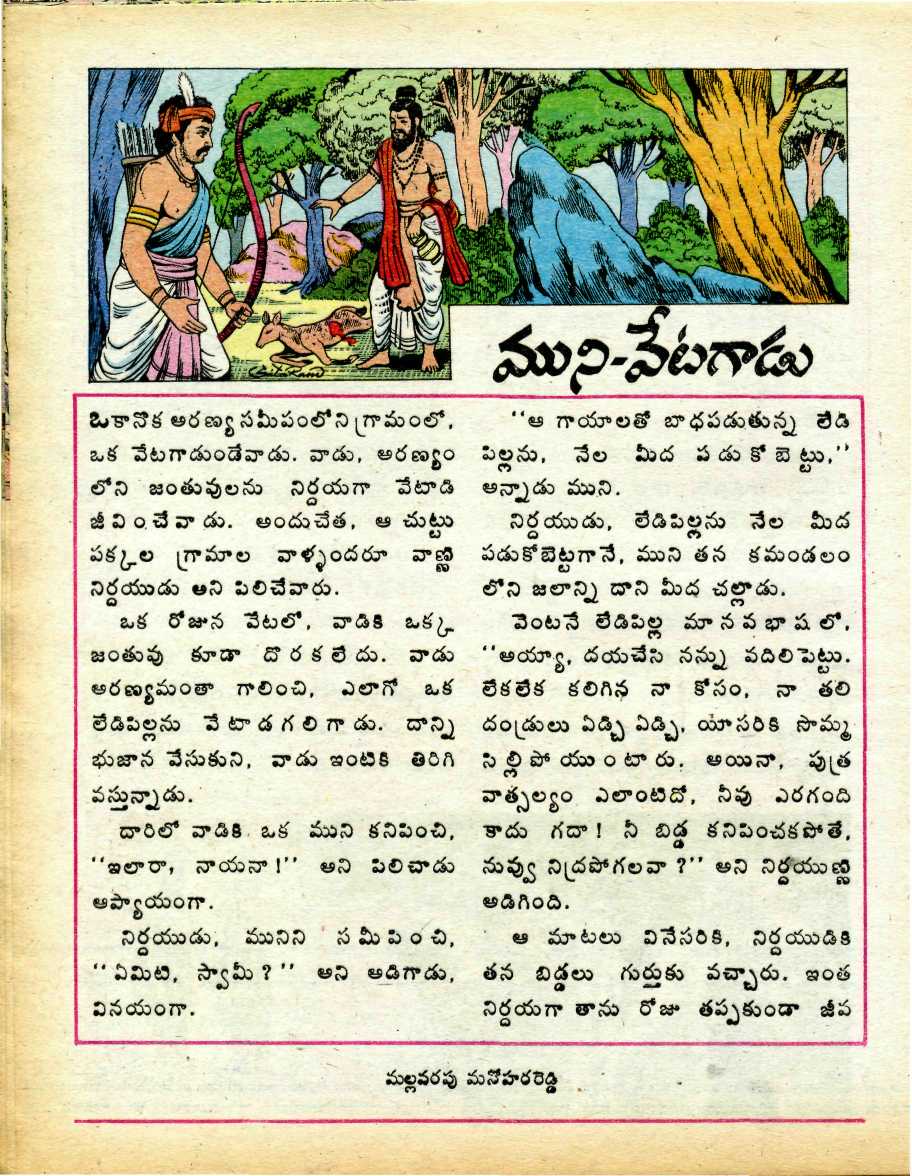 ముని-వేటగాడు
ఒకానొక అరణ్య సమీపంలోని గ్రామంలో,
ఒక వేటగాడుండేవాడు. వాడు, అరణ్యం
లోని జంతువులను నిర్దయగా వేటాడి
జీవించేవాడు. అందుచేత, ఆ చుట్టు
పక్కల గ్రామాల వాళ్ళందరూ వాణ్ణి
నిర్దయుడు అని పిలిచేవారు.
ఒక రోజున వేటలో, వాడికి ఒక్క
జంతువు కూడా దొరకలేదు. వాడు
అరణ్యమంతా గాలించి, ఎలాగో ఒక
లేడిపిల్లను వేటాడగలిగాడు. దాన్ని
భుజాన వేసుకుని, వాడు ఇంటికి తిరిగి
వస్తున్నాడు.
దారిలో వాడికి ఒక ముని కనిపించి,
‘‘ఇలారా, నాయనా!’’ అని పిలిచాడు
ఆప్యాయంగా.
నిర్దయుడు, మునిని సమీపించి,
‘‘ఏమిటి, స్వామీ?’’ అని అడిగాడు,
వినయంగా.
‘‘ఆ గాయాలతో బాధపడుతున్న లేడి
పిల్లను, నేల మీద పడుకోబెట్టు,’’
అన్నాడు ముని.
నిర్దయుడు, లేడిపిల్లను నేల మీద
పడుకోబెట్టగానే, ముని తన కమండలం
లోని జలాన్ని దాని మీద చల్లాడు.
వెంటనే లేడిపిల్ల మానవభాషలో,
‘‘అయ్యా, దయచేసి నన్ను వదిలిపెట్టు.
లేకలేక కలిగిన నా కోసం, నా తలి
దండ్రులు ఏడ్చి ఏడ్చి, యీసరికి సొమ్మ
సిల్లిపోయుంటారు. అయినా, పుత్ర
వాత్సల్యం ఎలాంటిదో, నీవు ఎరగంది
కాదు గదా! నీ బిడ్డ కనిపించకపోతే,
నువ్వు నిద్రపోగలవా?’’ అని నిర్దయుణ్ణి
అడిగింది.
ఆ మాటలు వినేసరికి, నిర్దయుడికి
తన బిడ్డలు గుర్తుకు వచ్చారు. ఇంత
నిర్దయగా తాను రోజు తప్పకుండా జీవ
మల్లవరపు మనోహరరెడ్డి